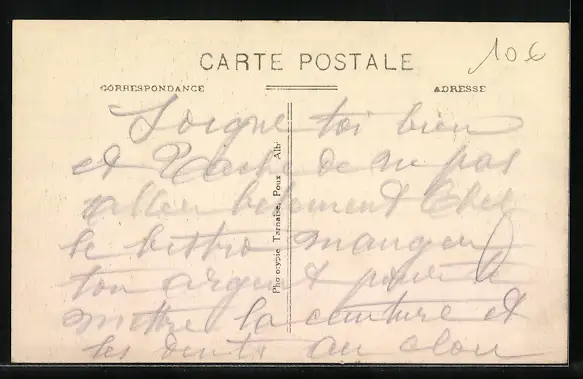 10 €
CARTE POSTALE
CORRESPONDANCE
ADRESSE
Phototypie Tarnaise, Poux Alb
Soigne toi bien
et tache de ne pas
aller betement chez
le bistro manger
ton argent pour te
mettre la ceinture et
les dents au clou